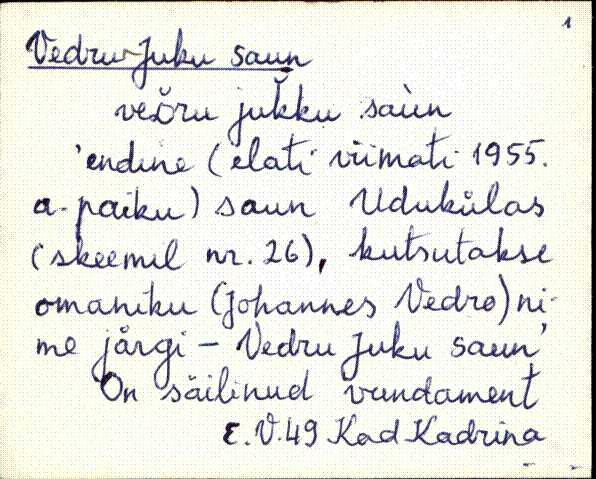 1
Vedru-Juku saun
veδru juk̆ku saùn
'endine (elati viimati 1955.
a. paiku) saun Udukülas
(skeemil nr. 26), kutsutakse
omaniku (Johannes Vedro) ni-
me järgi – Vedru Juku saun'
On säilinud vundament
E.V.49 Kad Kadrina